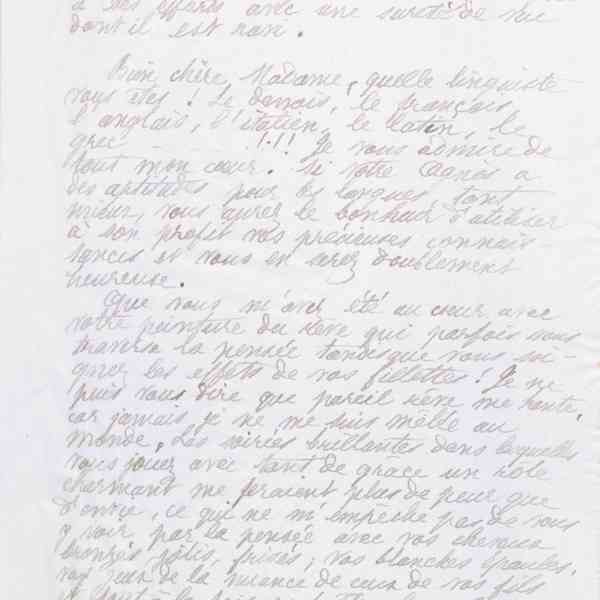 à des efforts avec une sureté de vue
dont il est ravi.
Bien chère Madame, quelle linguiste
vous êtes ! Le danois, le français,
l'anglais, l'italien, le latin, le
grec !!!! Je vous admire de
tout mon cœur. Si votre Agnès a
des aptitudes pour les langues, tant
mieux, vous aurez le bonheur d'utiliser
à son profit vos précieuses connais-
sances et vous en serez doublement
heureuse.
Que vous m'avez été au cœur avec
votre peinture du rêve qui parfois vous
traverse la pensée tandis que vous soi-
gnez les effets de vos fillettes ! Je ne
puis vous dire que pareil rêve me hante,
car jamais je ne me suis mêlée au
monde. Les soirées brillantes dans lesquelles
vous jouez avec tant de grace un rôle
charmant me feraient plus de peur que
d'envie, ce qui ne m'empêche pas de vous
y voir par la pensée avec vos cheveux
bronzés, jolis, frisés, vos blanches épaules,
vos yeux de la nuance de ceux de vos fils